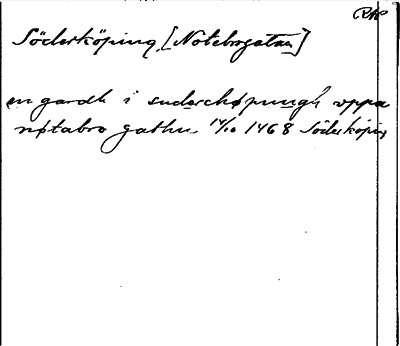 RAP
Söderköping [Notebrogatan]
en gardh i suderchøpungh vppa
nøtabro gathu 14/10 1468 Söderköping